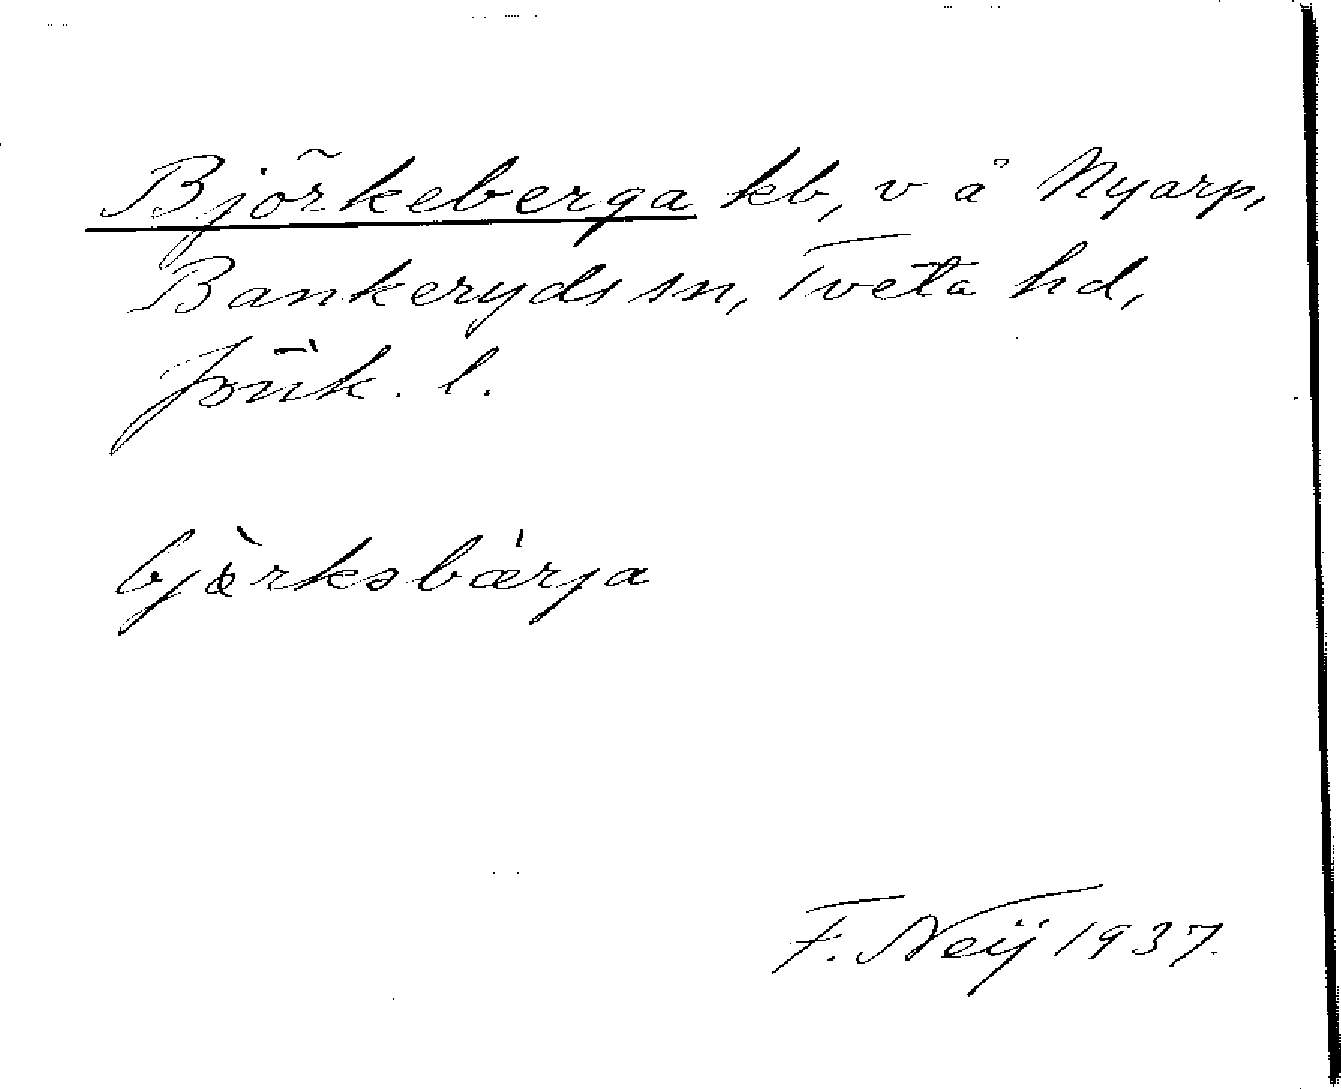 Björkeberga kb, v å Nyarp,
Bankeryds sn, Tveta hd,
Jönk. l.
bjæ̀rksbæ̍rja
F. Neij 1937.